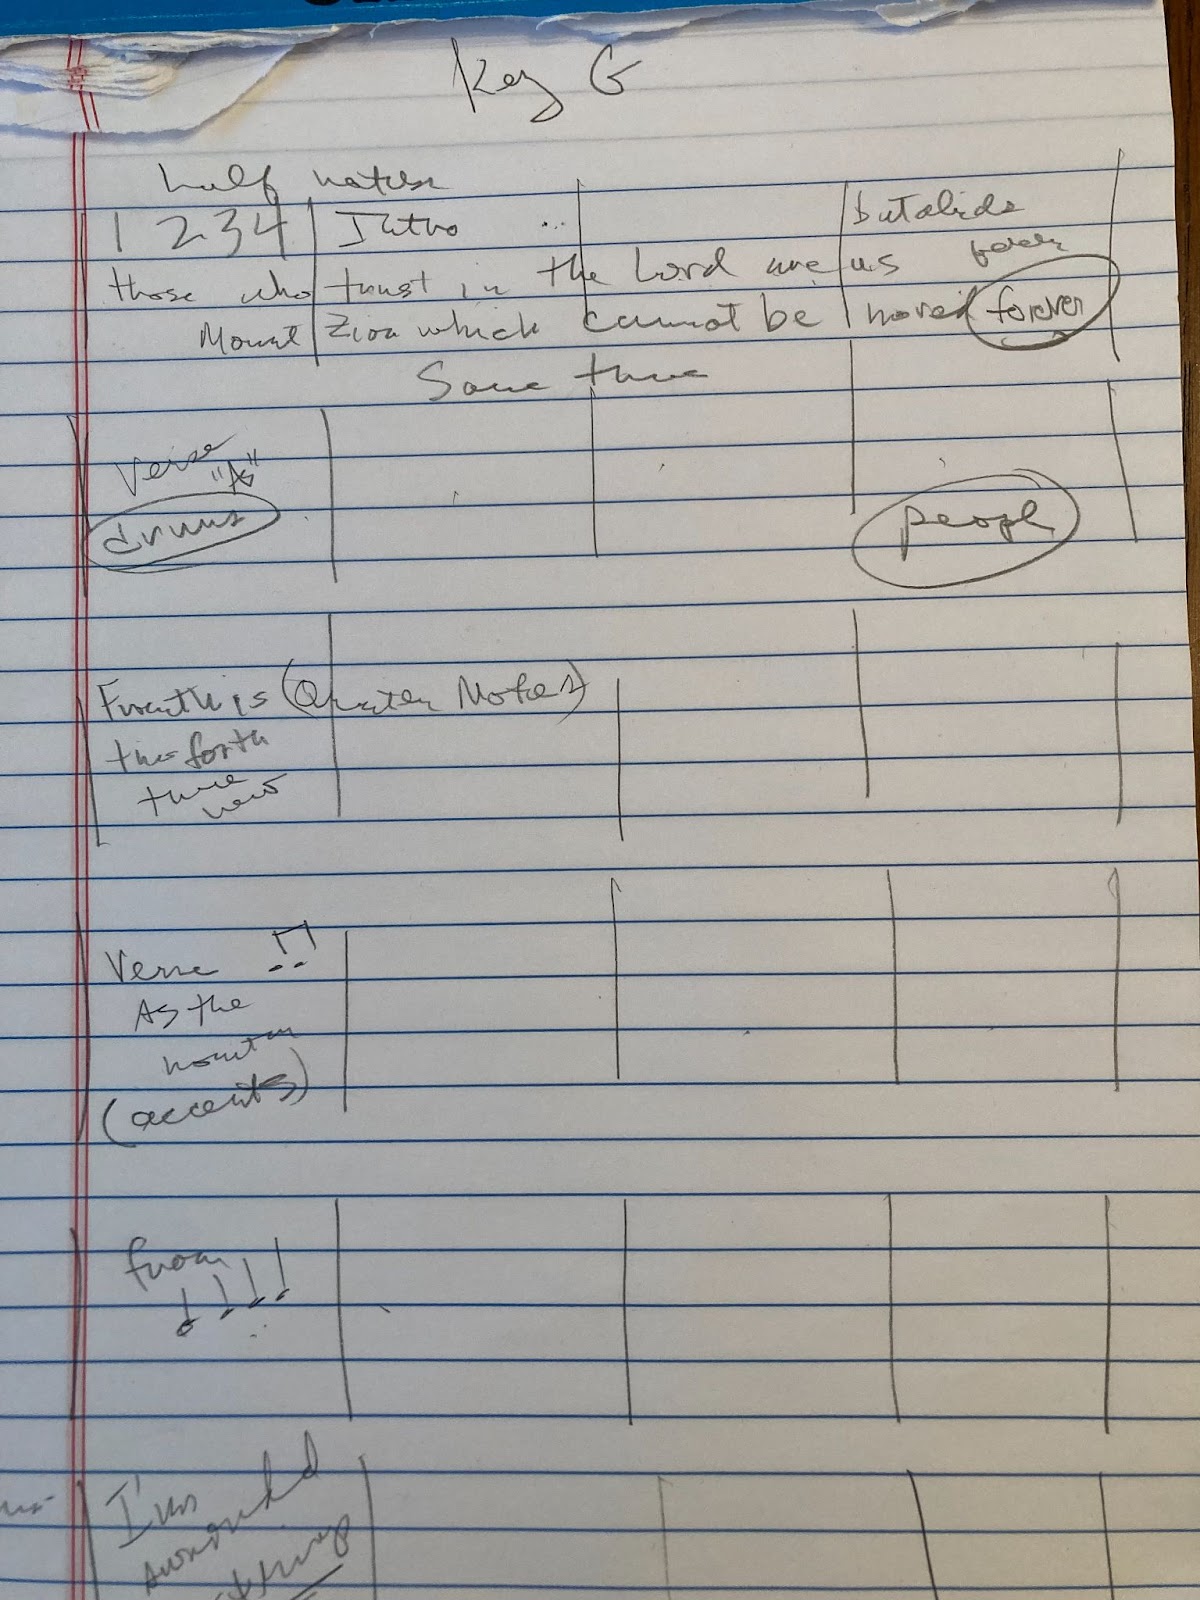 Key G
half notes
1 2 3 4 Intro ... but abides
those who trust in the Lord are as
Mount Zion which cannot be moved forever
Same time
Verse
"A"
drums
people
(Quarter Notes)
the forth
time new
Verse
As the
(accents)
from
I'm
surrounded